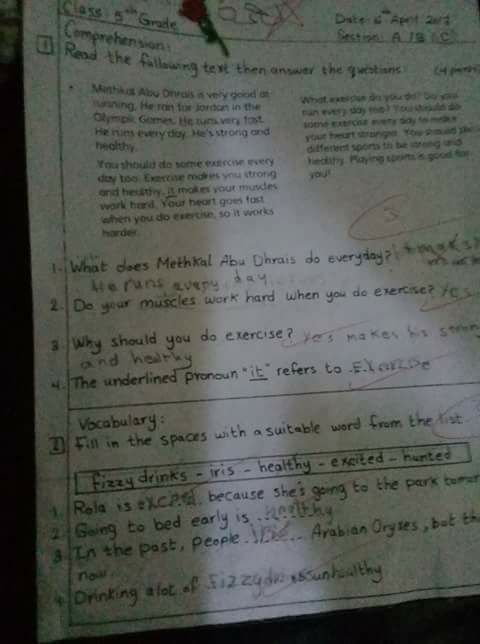 Class: 5th Grade
Date: 6th April 201
Section: A /B /C
Comprehension:
1 Read the following text then answer the questions:
Methkal Abu Dhrais is very good at
running. He ran for Jordan in the
Olympic Games. He runs very fast.
He runs every day. He's strong and
healthy.
You should do some exercise every
day too. Exercise makes you strong
and healthy. It makes your muscles
work hard. Your heart goes fast
when you do exercise, so it works
harder.
What exercise do you do? Do you
run every day too? You should do
some exercise every day to make
your heart stronger. You should
different sports to be strong and
healthy. Playing sports is good for
you!
3
1. What does Methkal Abu Dhrais do everyday?
He runs every day
2. Do your muscles work hard when you do exercise? Yes
3. Why should you do exercise? Yes makes his stron
and healthy
4. The underlined pronoun "it" refers to .Exercise
Vocabulary:
II Fill in the spaces with a suitable word from the list.
fizzy drinks - iris - healthy - excited - hunted
1. Rola is because she's going to the park
2. Going to bed early is healthy
3. In the past, people Arabian Oryxes, but
now.
4. Drinking a lot of unhealthy